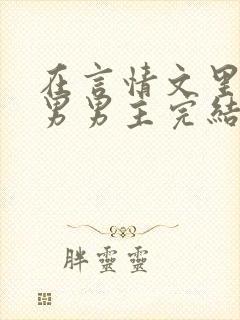 在言情文里
男男主完結
胖靈靈